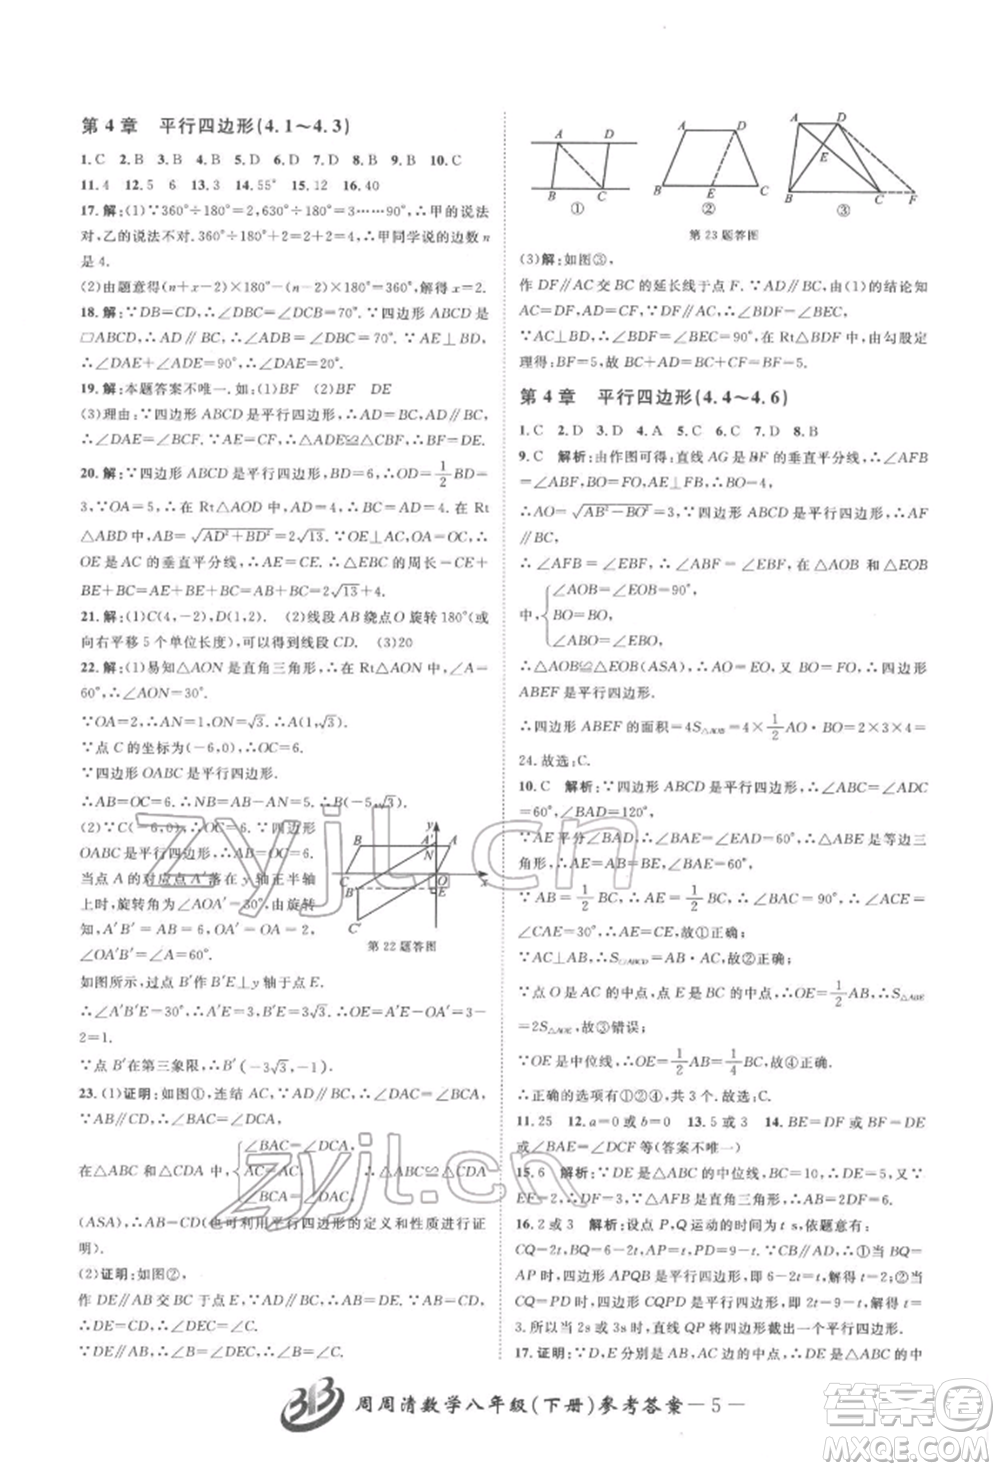 第4章 平行四边形(4.1～4.3)
1.C 2.B 3.B 4.B 5.D 6.D 7.D 8.B 9.B 10.C
11.4 12.5 6 13.3 14.55° 15.12 16.40
17.解:(1)∵360°÷180°=2,630°÷180°=3……90°,∴甲的说法
对,乙的说法不对.360°÷180°+2=4,∴甲同学说的边数n
是4.
(2)由题意得(n+x-2)×180°-(n-2)×180°=360°,解得x=2.
18.解:∵DB=CD,∴∠DBC=∠C=70°.∵四边形
□ABCD,∴AD∥BC,∴∠ADE=∠DBC=70°.∵AE⊥BD,
∴∠DAE+∠ADE=90°,∴∠DAE=20°.
19.解:本题答案不唯一.如(1)BF (2)BF DE
(3)理由:∵四边形ABCD是平行四边形,∴AD=BC,AD∥BC,
∴∠DAE=∠BCF.∵AE=CF,∴△DAE≌△BCF,∴BF=DE.
20.解:∵四边形ABCD是平行四边形,BD=6,∴OD=1/2BD=
3,∵OA=5,∴在Rt△AOD中,AD=4,∴BC=4.在Rt
△ADB中,AB=√AD²+BD²=2√13.∵OE⊥AC,OA=OC,∴
OE是AC的垂直平分线,∴AE=CE,∴△CBE的周长=
BE+CE+BC=BE+AE+BC=AB+BC=2√13+4.
21.解:(1)C(4,-2),D(1,2) (2)线段AB绕点O旋转180°(或
向右平移5个单位长度),可以得到线段CD. (3)20
22.解:(1)易知△AON是直角三角形,在Rt△AON中,∵∠A=
60°,∴∠AON=30°.
∵OA=2,∴AN=1,∴ON=√3,∴A(1,√3).
∵点C的坐标为(-6,0),∴OC=6.
∵四边形OABC是平行四边形.
∴AB=OC=6.∴BN=6-1=5,∴B(-5,√3)
(2)∵C(-6,0),∴OC=6.∵四边形
OABC是平行四边形,∴AB=OC=6.
当点A的对应点A′落在y轴正半轴
上时,旋转角为∠AOA′=30°.由旋转
知,A′B′=AB=6,OA′=OA=2,
∠OA′B′=∠A=60°.
如图所示,过点B′作B′E⊥y轴于点E.
∴∠A′B′E=30°,∴A′E=3,B′E=3√3,∴OE=A′E-OA′=3
-2=1.
∵点B′在第三象限,∴B′(-3√3,-1)
23.(1)证明:如图①,连结AC,∵AD∥BC,∴∠DAC=∠BCA.
∵AB∥CD,∴∠BAC=∠DCA,
在△ABC和△CDA中,
∠BAC=∠DCA,
AC=AC,
∠BCA=∠DAC,
∴△ABC≌△CDA
(ASA),∴AB=CD(也可利用平行四边形的定义和性质进行证
明).
(2)证明:如图②,
作DE∥AB交BC于点E,∴∠DEC=∠B.∵AD∥BC,∴AB=
DE.∵AB=CD,∴DE=CD,∴∠DEC=∠C,∴∠B=∠C.
y
B A′ A
N
C O
B′ E x
C′
第22题答图
A D
B C
①
A D
B E C
②
A D
E
B C F
③
第23题答图
(3)解:如图③,
作DF∥AC交BC的延长线于点F.∵AD∥BC,由(1)的结论知
AC=DF,AD=CF.∵DF∥AC,∴∠BDF=∠BEC,
∵AC⊥DB,∴∠BEC=90°,∴∠BDF=∠BEC=90°,由勾股定
理得:BF=5,故BC+AD=BC+CF=BF=5.
第4章 平行四边形(4.4～4.6)
1.C 2.D 3.D 4.A 5.C 6.C 7.D 8.B
9.C 解析:由作图可得:直线AG是BF的垂直平分线,∴∠AFB
=∠ABF,BO=FO=4,AE⊥FB,∴∠AOB=90°.∵AB=5,
∴AO=√AB²-BO²=3,∵四边形ABCD是平行四边形,∴AF
∥BC,
∴∠AFB=∠EBF,∴∠ABF=∠EBF,在△AOB和△EOB
中,
∠AOB=∠EOB=90°,
BO=BO,
∠ABO=∠EBO,
∴△AOB≌△EOB(ASA),∴AO=EO,又∵BO=FO,∴四边形
ABEF是平行四边形.
∴四边形ABEF的面积=4S△AOB=4×1/2AO·BO=2×3×4=
24.故选:C.
10.C 解析:∵四边形ABCD是平行四边形,∴∠ABC=∠ADC
=60°,∠BAD=120°.
∵AE平分∠BAD,∴∠BAE=∠EAD=60°,∴△ABE是等边三
角形,∴AE=AB=BE,∠AEB=60°.
∵AB=1/2BC,∴AE=BE=1/2BC,∴AE=CE,∴∠ACE=
∠CAE=30°,∴∠BAC=90°,∴①正确;
∵AC⊥AB,∴S□ABCD=AB·AC,故②正确;
∵点O是AC的中点,点E是BC的中点,∴S△ABE=S△ACE,S△ABE
=2S△AOE,故③错误;
∵OE是中位线,∴OE=1/2AB=1/4BC,故④正确.
∴正确的选项有①②④,共3个.故选:C.
11.25 12.a=0或b=0 13.5或3 14.BE=DF或AF=CE
或∠BAE=∠DCF等(答案不唯一)
15.6 解析:∵DE是△ABC的中位线,BC=10,∴DE=5.∵
EF=2,∴DF=3.∵△AFB是直角三角形,∴AB=2DF=6.
16.2或3 解析:设点P,Q运动的时间为t s,依题意有:
CQ=2t,BQ=6-2t,AP=t,PD=9-t.①∵AD∥BC,∴当BQ=
AP时,四边形APQB是平行四边形,即6-2t=t,解得t=2.②当
CQ=PD时,四边形CQPD是平行四边形,即2t=9-t,解得t=
3.所以当2s或3s时,直线QP将四边形截出一个平行四边形.
17.证明:∵D、E分别是AB、AC的中点,∴DE是△ABC的中
周周清数学八年级(下册)参考答案—5—
zyjl.cn
zyjl.cn
答案圈
MXQE.COM